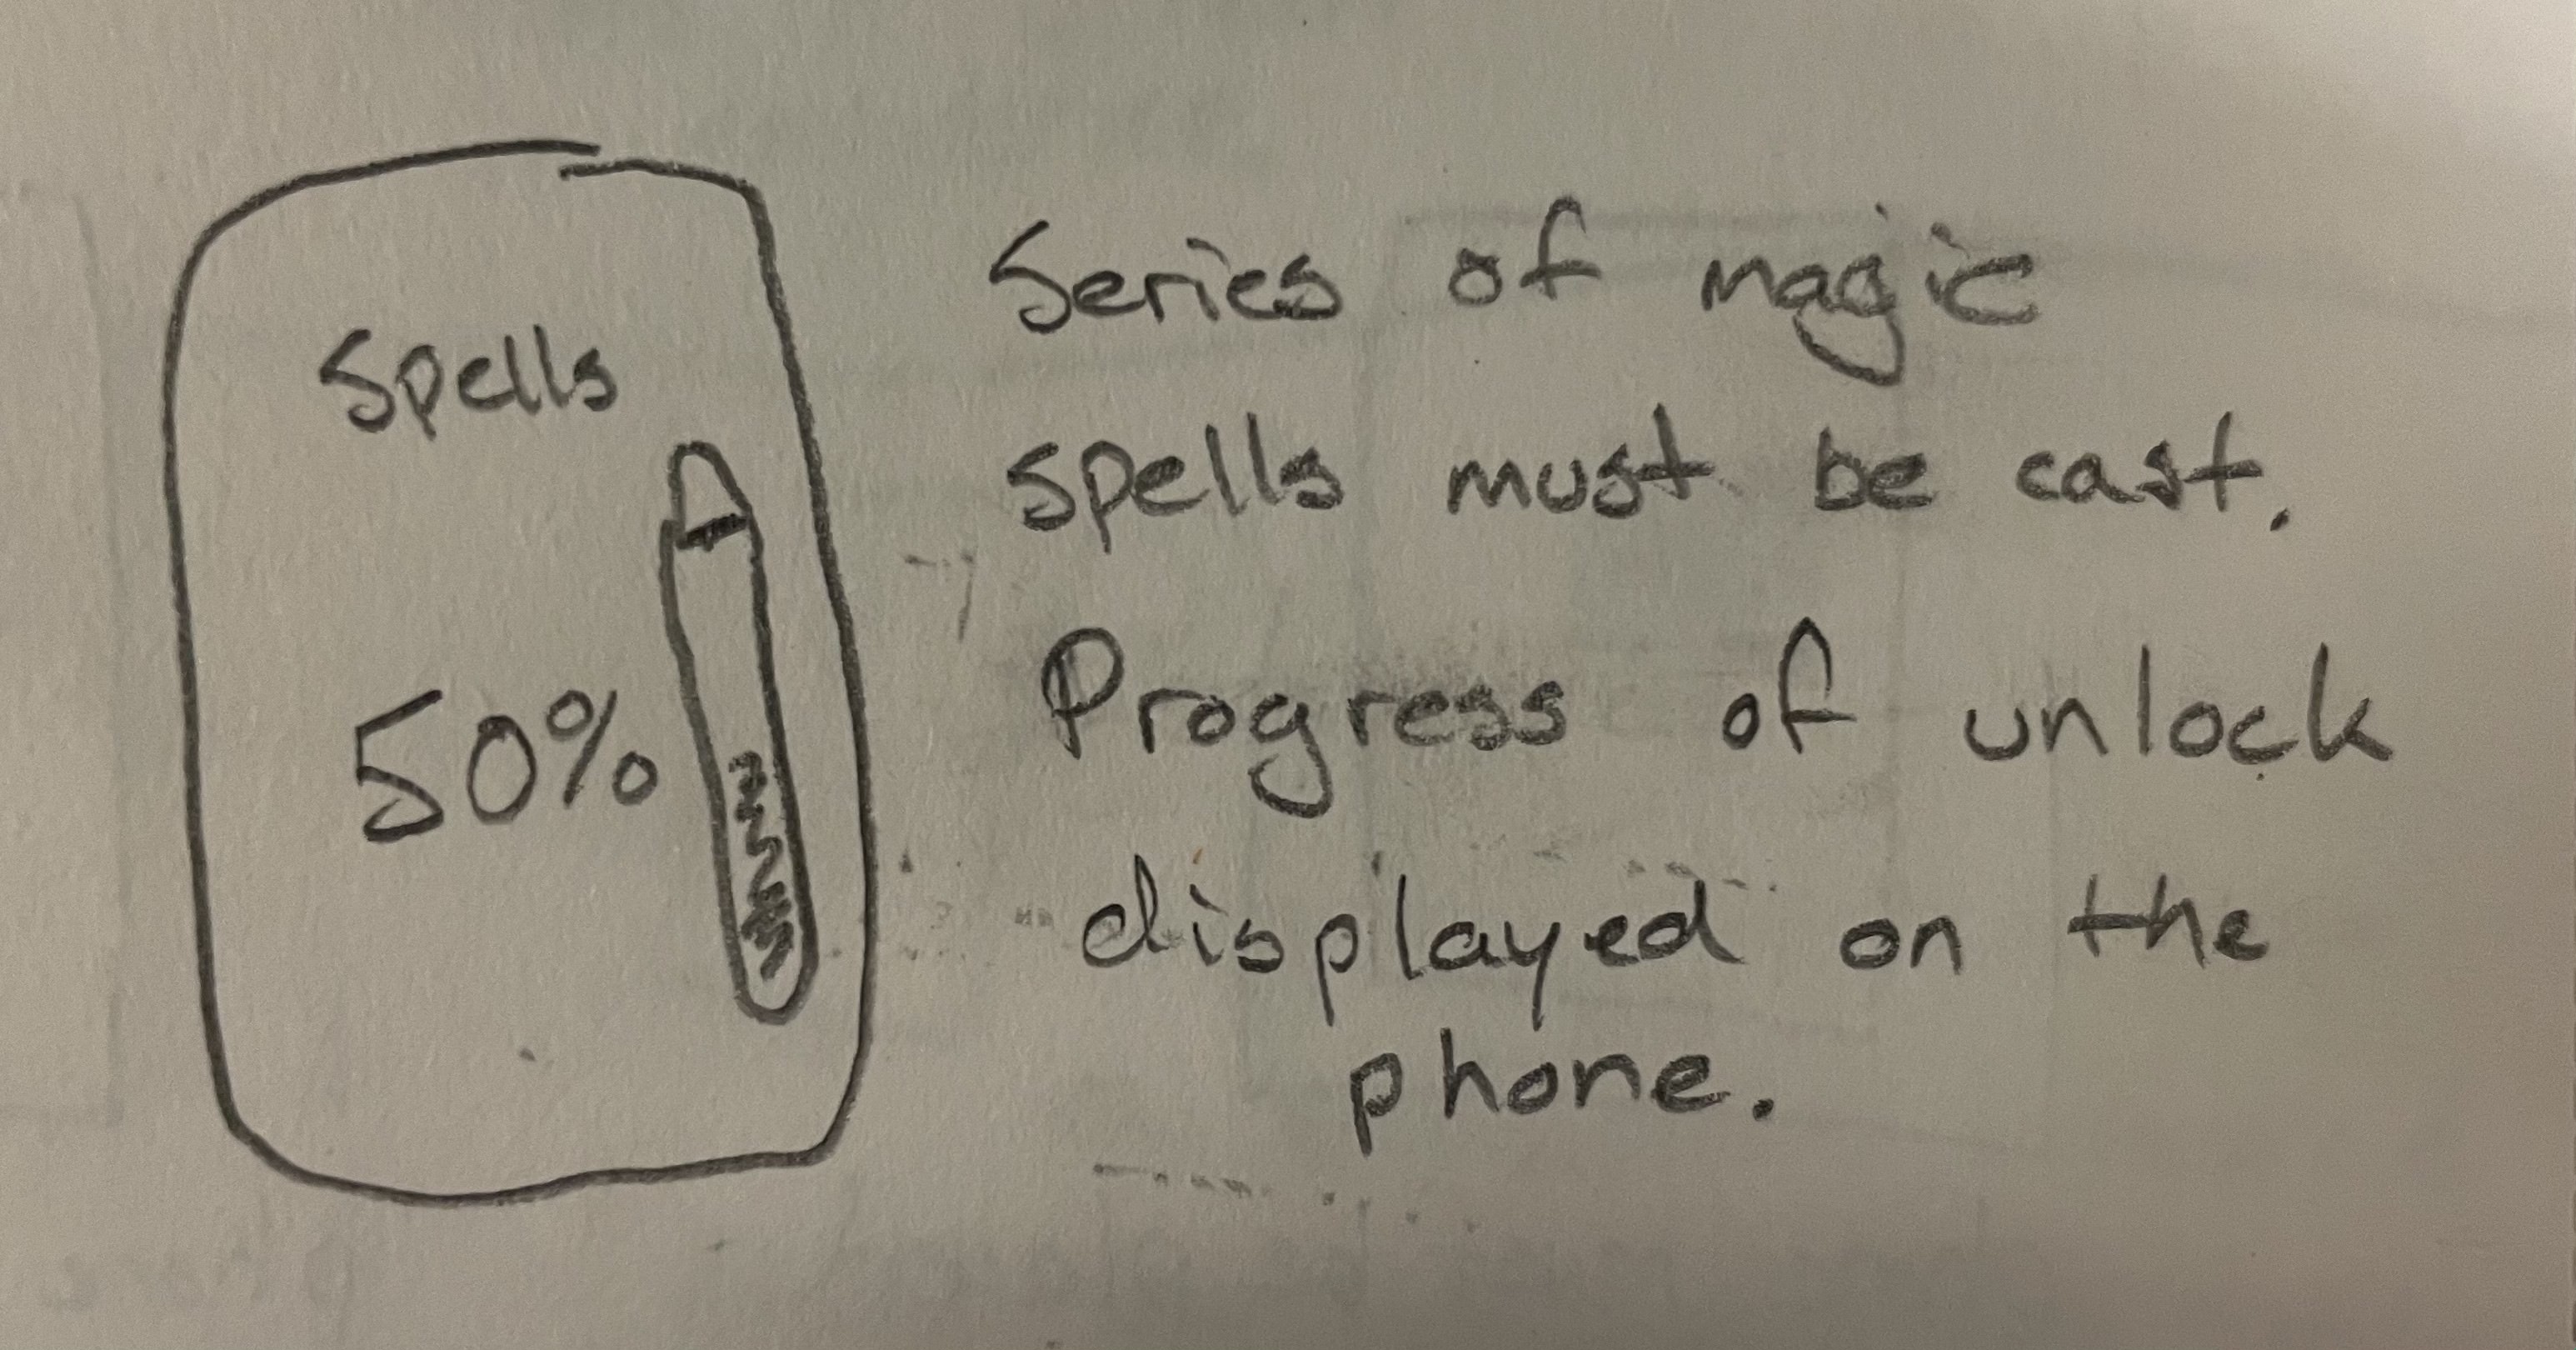 Spells
50%
Series of magic
spells must be cast.
Progress of unlock
displayed on the
phone.